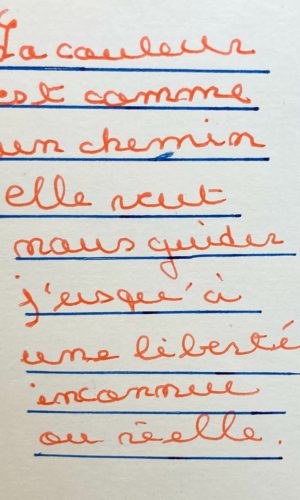 La couleur
est comme
un chemin
elle veut
nous guider
j'usqu'à
une liberté
inconnue
ou réelle.